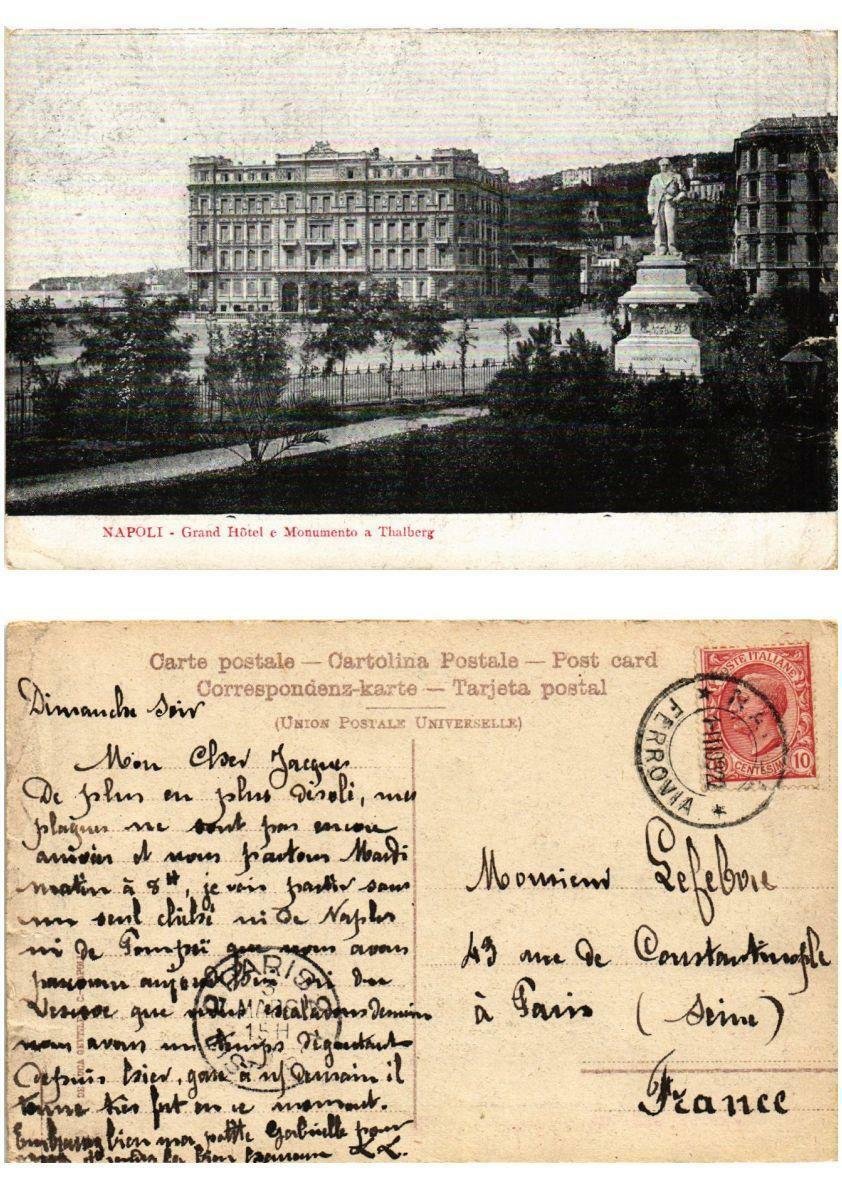 NAPOLI - Grand Hôtel e Monumento a Thalberg
Carte postale — Cartolina Postale — Post card
Correspondenz-karte — Tarjeta postal
(UNION POSTALE UNIVERSELLE)
POSTE ITALIANE
CENTESIMI 10
FERROVIA
Dimanche soir
Mon Cher Jacques
De plus en plus désolé, mes
plaques ne sont pas encore
arrivées et nous partons Mardi
matin à 8H, je vais partir sans
un seul cliché ni de Naples
ni de Pompeï que nous avons
parcouru aujourd'hui ni du
Vesuve que nous escaladons demain
nous avons un temps dégoutant
depuis hier, gare à demain il
tonne très fort en ce moment.
Embrasse bien ma petite Gabrielle pour
bien L.L.
PARIS
15H
Monsieur Lefebvre
43 rue de Constantinople
à Paris (Seine)
France